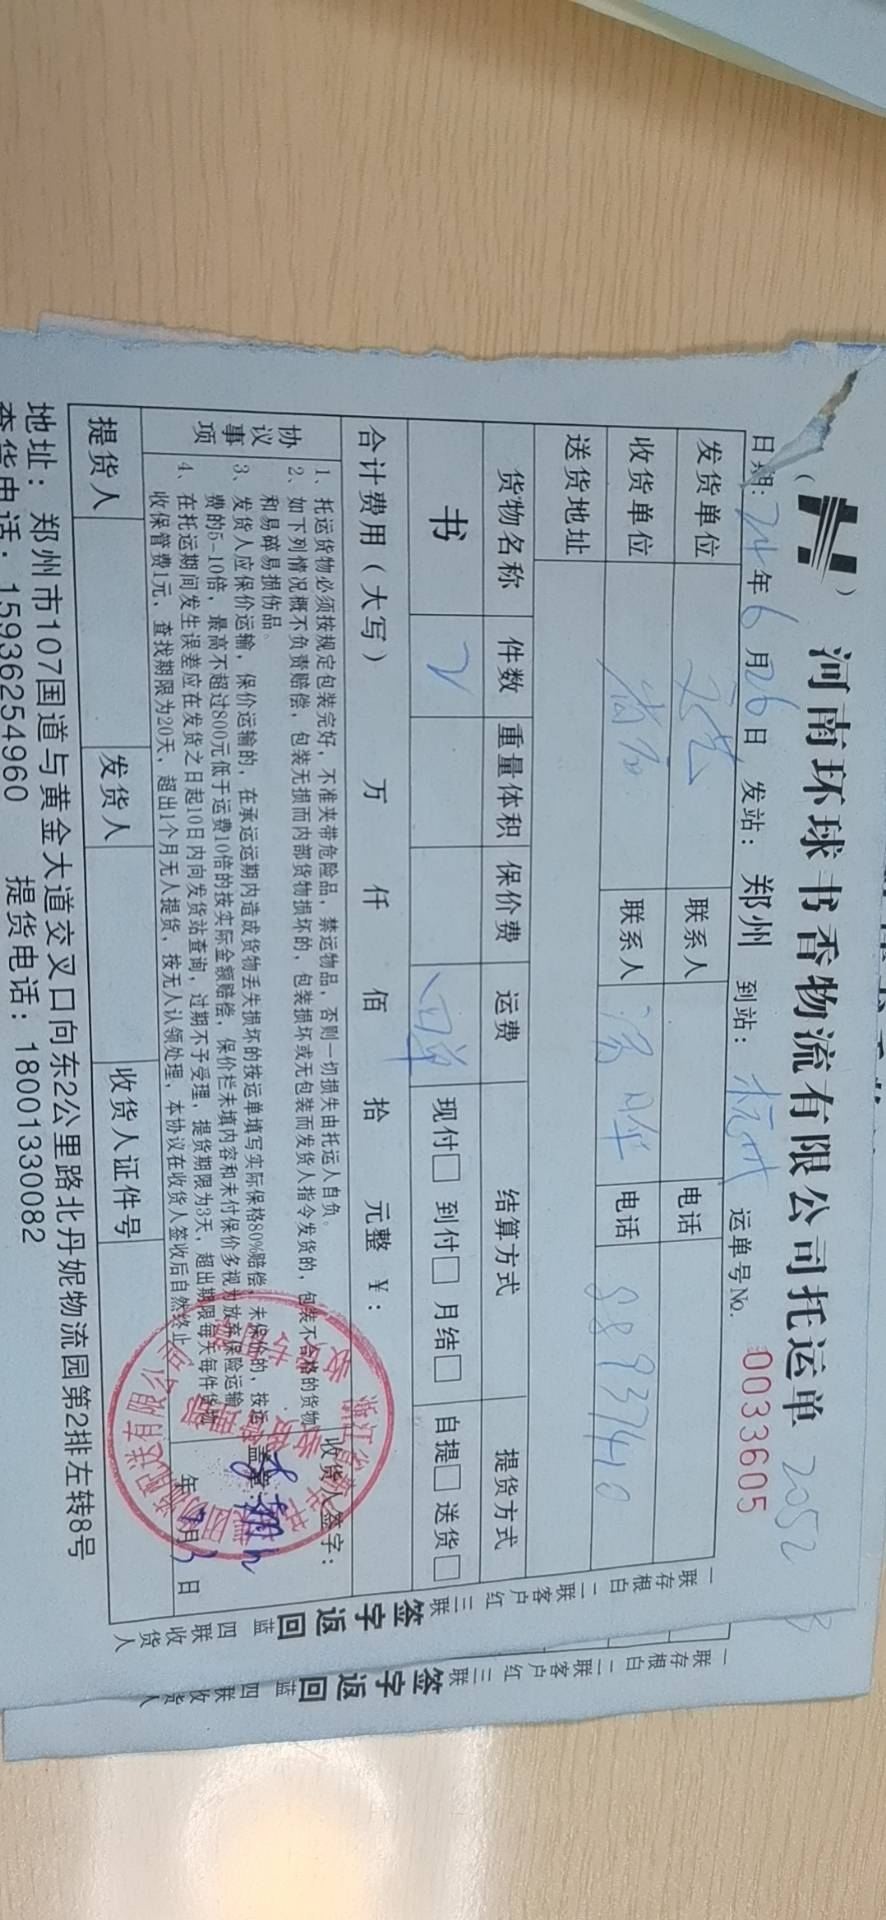 河南环球书香物流有限公司托运单 2052
日期: 24年6月26日 发站: 郑州 到站: 杭州 运单号No. 0033605
发货单位 联系人 电话
收货单位 联系人 电话 88937410
送货地址
货物名称 件数 重量体积 保价费 运费 结算方式 提货方式
书 2 回单 现付□ 到付□ 月结□ 自提□ 送货□
合计费用(大写) 万 仟 佰 拾 元整 ¥:
协议事项
1、托运货物必须按规定包装完好,不准夹带危险品,禁运物品,否则一切损失由托运人自负。
2、如下列情况概不负责赔偿,包装无损而内部货物损坏的,包装损坏或无包装而发货人指令发货的,包装不合格的货物
和易碎易损伤品。
3、发货人应保价运输,保价运输的,在承运运期内造成货物丢失损坏的按运单填写实际保格80%赔偿,未保价的,按运
费的5-10倍,最高不超过800元低于运费10倍的按实际金额赔偿,保价栏未填内容和未付保价多视为放弃保险运输
4、在托运期间发生误差应在发货之日起10日内向发货站查询,过期不予受理,提货期限为3天,超出期限每天每件货物
收保管费1元,查找期限为20天,超出1个月无人提货,按无人认领处理,本协议在收货人签收后自然终止
收货人签字:
盖章:
年7月3日
提货人 发货人 收货人证件号
地址: 郑州市107国道与黄金大道交叉口向东2公里路北丹妮物流园第2排左转8号
查货电话: 15936254960 提货电话: 18001330082
一联存根白 二联客户红 三联签字返回蓝 四联收货人
一联存根白 二联客户红 三联签字返回蓝 四联收货人